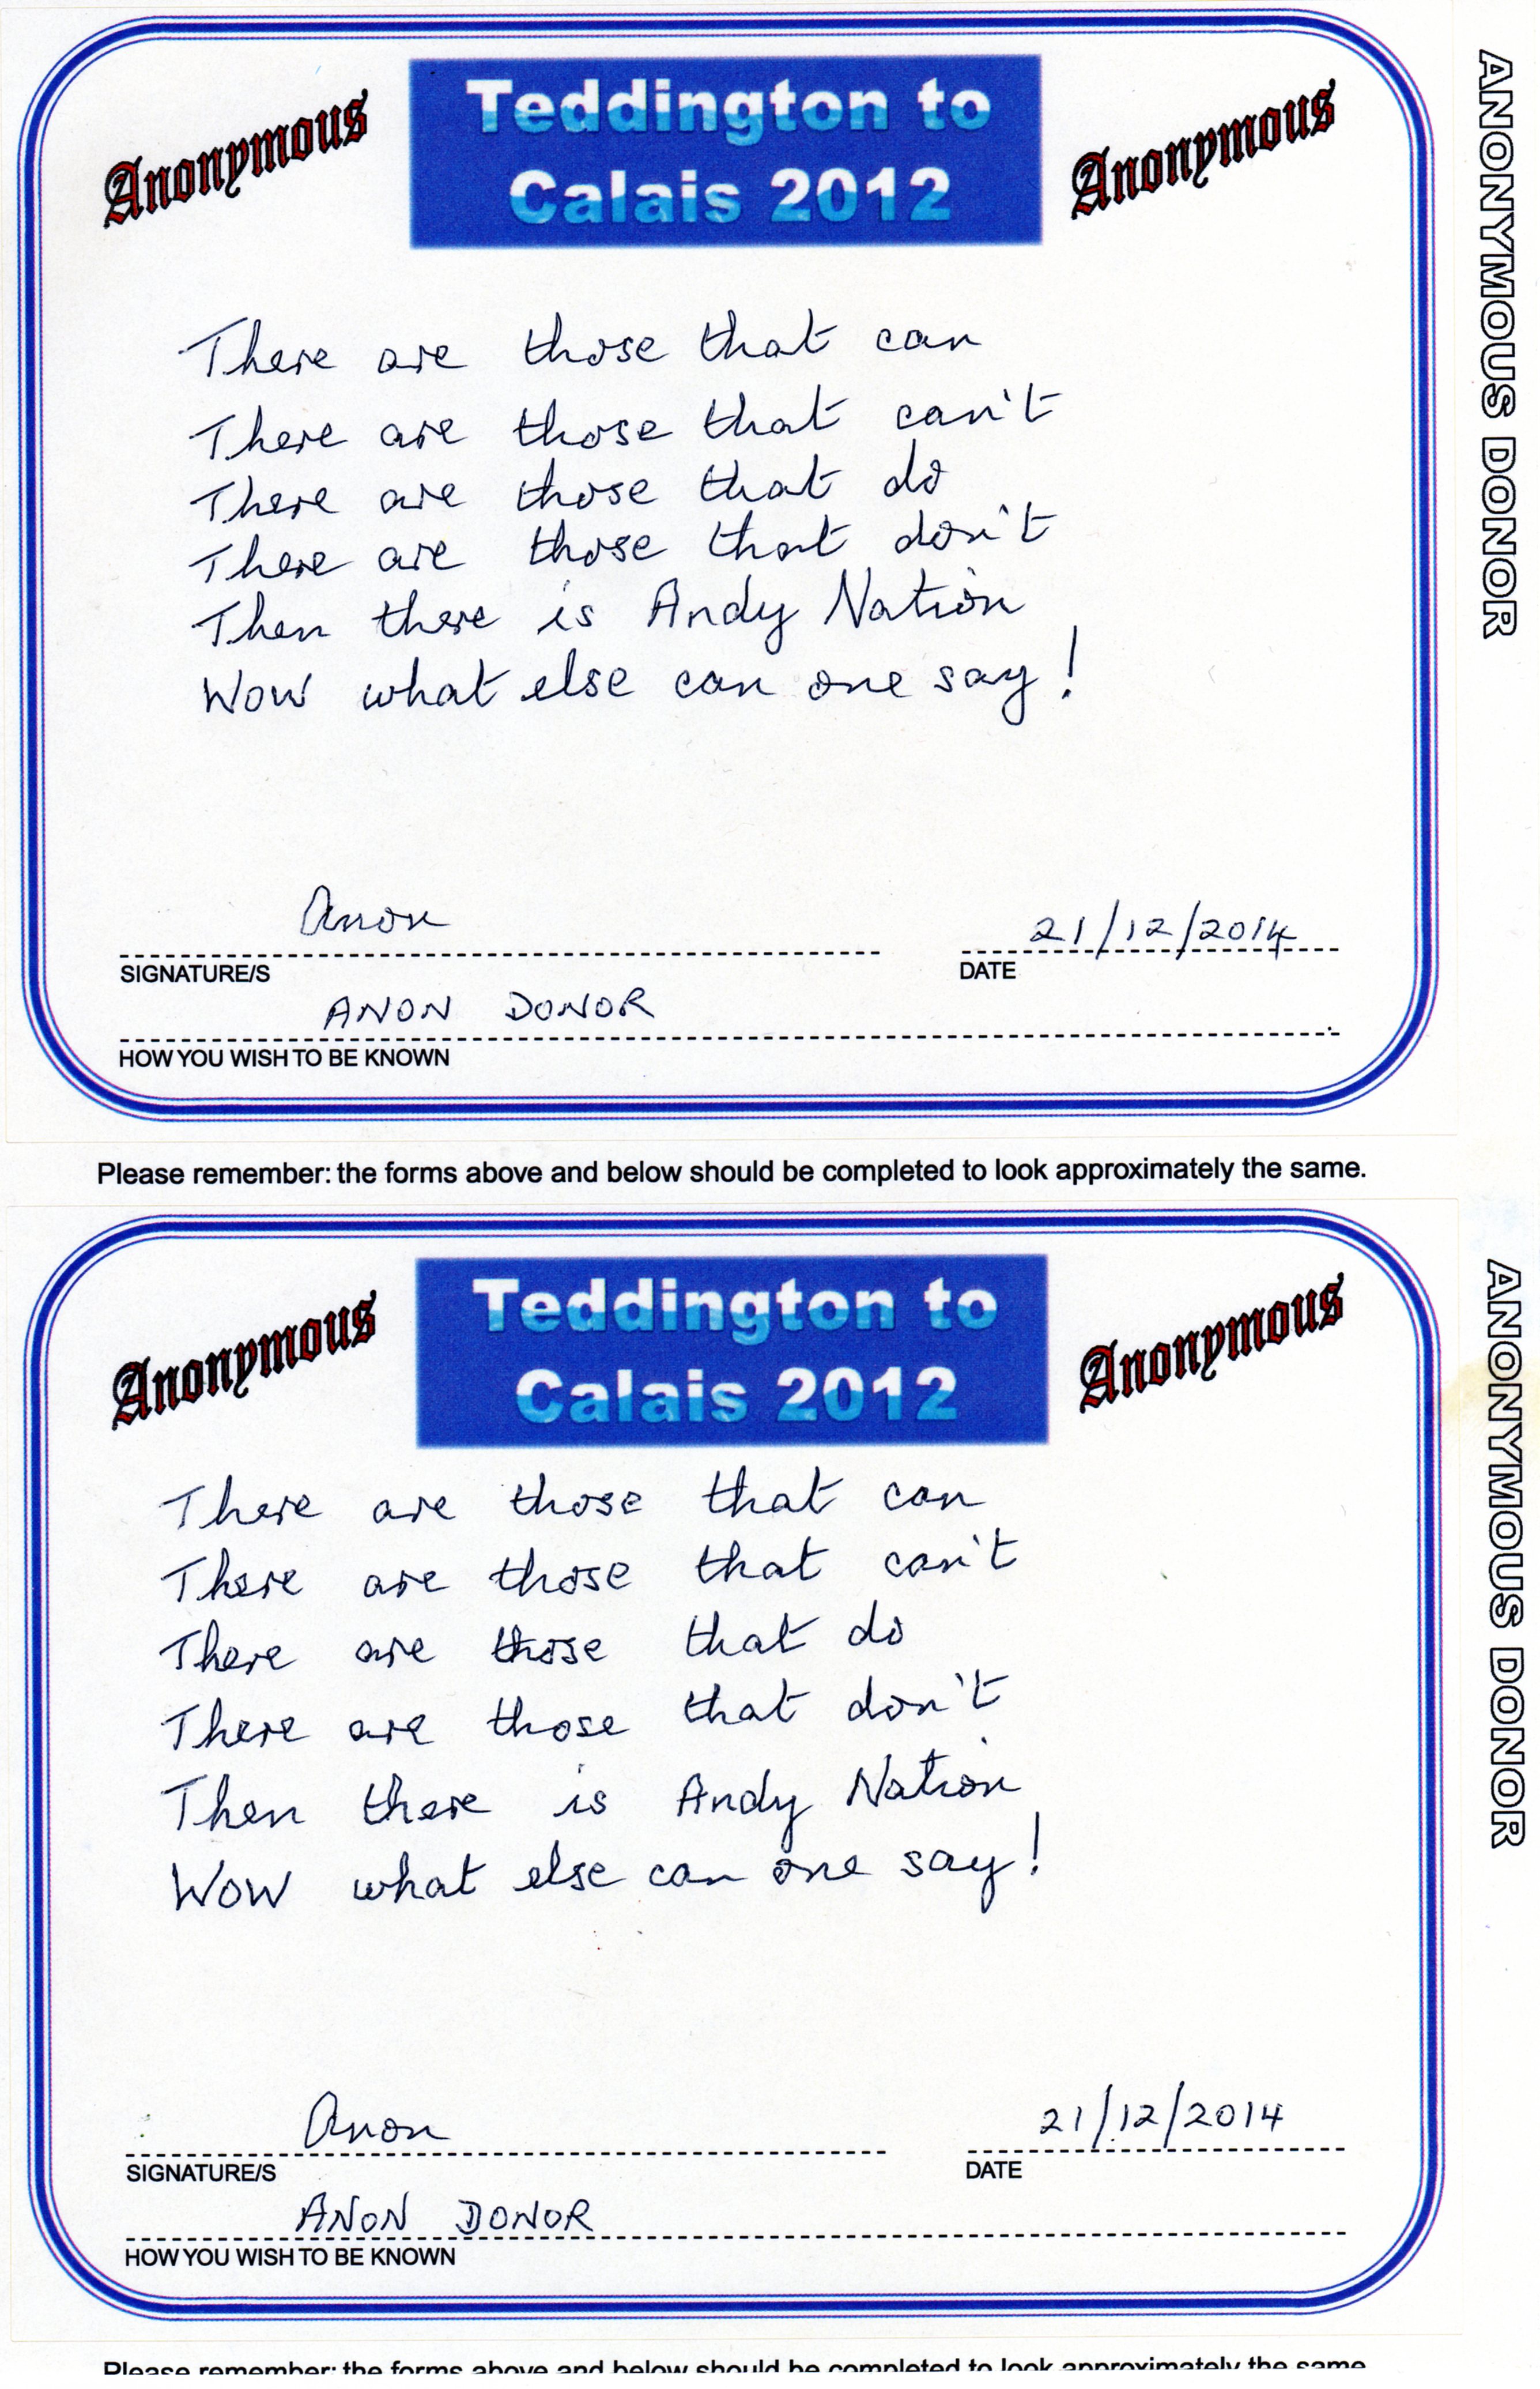 Anonymous
Teddington to
Calais 2012
Anonymous
ANONYMOUS DONOR
There are those that can
There are those that can't
There are those that do
There are those that don't
Then there is Andy Nation
Wow what else can one say!
Anon
21/12/2014
SIGNATURE/S
DATE
ANON DONOR
HOW YOU WISH TO BE KNOWN
Please remember: the forms above and below should be completed to look approximately the same.
Anonymous
Teddington to
Calais 2012
Anonymous
ANONYMOUS DONOR
There are those that can
There are those that can't
There are those that do
There are those that don't
Then there is Andy Nation
Wow what else can one say!
Anon
21/12/2014
SIGNATURE/S
DATE
ANON DONOR
HOW YOU WISH TO BE KNOWN
Please remember: the forms above and below should be completed to look approximately the same